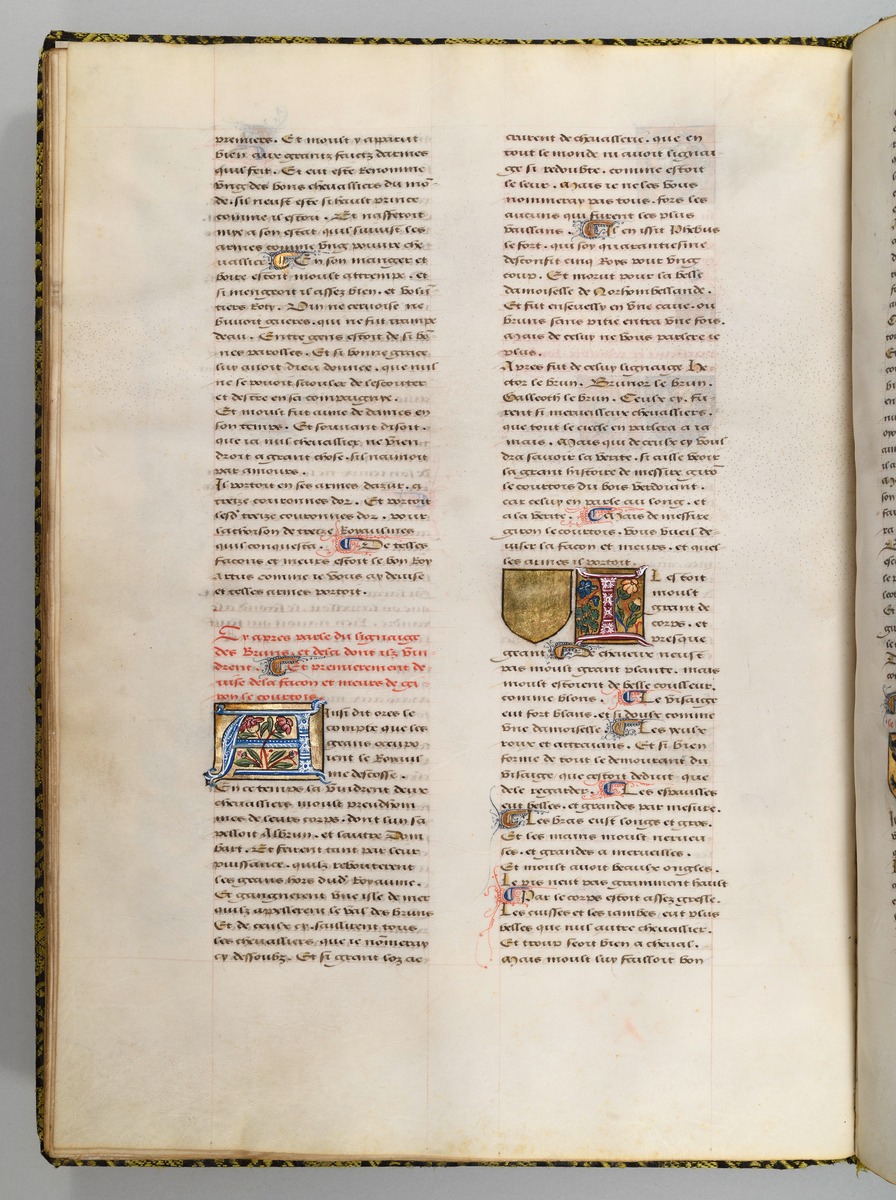 premiers. Et moult y apparut
bien aux grantz faictz darmes
quil feit. Et eut este Renomme
vng des bons cheualliers du mō-
de. sil neust este si hault prince
comme il estoit. Et nafferoit
mye a son estat quil suiuist les
armes comme vng pouure che
uallier. En son manger et
boire estoit moult attrempe. et
si mengeoit il assez bien. et volū
tiers Roty. Vin ne ceruoise ne
buuoit gueres. qui ne fut trampe
deau. Entre gens estoit de si bō
nes parolles. Et si bonne grace
luy auoit dieu donnee. que nul
ne se pouoit saouler de lescouter
et destre en sa compaignye.
Et moult fut aime de dames en
son temps. Et souuant disoit.
que ia nul cheuallier ne vien
droit a grant chose. sil naimoit
par amours.
Il portoit en ses armes dazur. a
treize couronnes dor. Et portoit
lesd treize couronnes dor. pour
lachoison de treize Royaulmes
quil conquesta. De telles
facons et meurs estoit le bon Roy
Artus comme ie vous ay deuise
et telles armes portoit.
Cy apres parle du lignaige
des Bruns. et dela dont ilz vin
drent. Et premierement de
uise dela facon et meurs de gi
ron le courtois.
Ainsi dit ores le
compte que les
geans occupo
ient le Royaul
me descosse.
En ce temps la vindrent deux
cheualliers moult preudhom
mes de leurs corps. dont lun sa
pelloit Albrun. et lautre Dom
bart. Et firent tant par leur
puissance. quilz rebouterent
les geans hors dud Royaume.
Et gaignerent vne isle de mer
quilz appellerent le val des bruns
Et de ceulx cy. saillirent tous
les cheualliers que ie nōmeray
cy dessoubz. Et si grant loz ac
crurent de cheuallerie. que en
tout le monde ni auoit lignai
ge si redoubte. comme estoit
le leur. Mais ie ne les vous
nommeray pas tous. fors les
aucuns qui furent les plus
vaillans. Il en issit Phebus
le fort. qui soy quarantiesme
desconfit cinq Roys pour vng
coup. Et morut pour la belle
damoiselle de Norhombellande.
Et fut enseuelly en vne caue. ou
bruns sans pitie entra vne fois.
Mais de celuy ne vous parlere ie
plus.
Apres fut de celuy lignaige He
ctor le brun. Brunor le brun.
Galleoth le brun. Ceulx cy. fu
rent si merueilleux cheualliers.
que tout le siecle en parlera a ia
mais. Mais qui de ceulx cy voul
dra sauoir la verite. si aille veoir
la grant histoire de messire girō
le courtois du bois verdoiant.
car celuy en parle au long. et
a la verite. Mais de messire
giron le courtois. vous vueil de-
uiser la facon et meurs. et quel
les armes il portoit.
Il estoit
moult
grant de
corps. et
presque
geant. De cheueux neust
pas moult grant plante. mais
moult estoient de belle couleur.
comme blons. Le visaige
eut fort blanc. et si doulx comme
vne damoiselle. Les yeulx
roux et attraians. Et si bien
forme de tout le demourant du
visaige que cestoit deduit que
dele regarder. Les espaulles
eut belles. et grandes par mesure.
Les bras eust longs et gros.
Et les mains moult nerueu
ses. et grandes a merueilles.
Et moult auoit beaulx ongles.
Le pis neut pas gramment hault
Par le corps estoit assez gresle.
Les cuisses et les iambes. eut plus
belles que nul autre cheuallier.
Et trop seoit bien a cheual.
Mais moult luy failloit bon